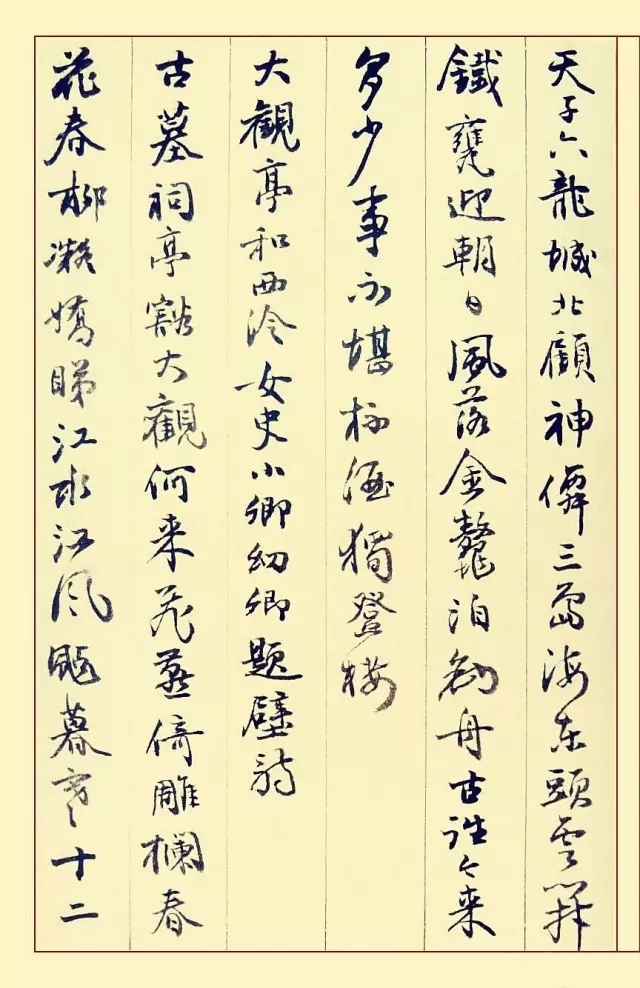 天子六龍城北顧神僊三島海东頭雲開
鐵甕迎朝日風落金鼇泊舟古往今来
多少事不堪杯酒獨登樓
大觀亭和西泠女史小卿幼卿題壁詩
古墓祠亭豁大觀何来飛燕倚雕欄春
花春柳凝嬌睇江水江風颭暮寒十二